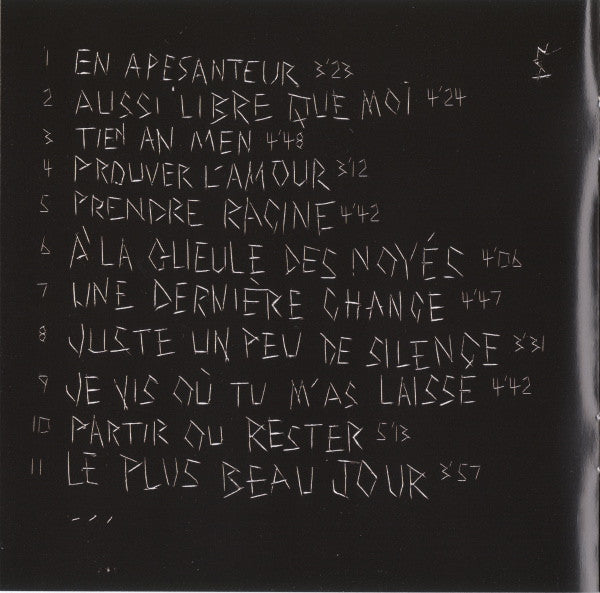 1 EN APESANTEUR 3'23
2 AUSSI LIBRE QUE MOI 4'24
3 TIEN AN MEN 4'48
4 PROUVER L'AMOUR 3'12
5 PRENDRE RACINE 4'42
6 À LA GUEULE DES NOYÉS 4'06
7 UNE DERNIÈRE CHANCE 4'47
8 JUSTE UN PEU DE SILENCE 3'31
9 JE VIS OÙ TU M'AS LAISSÉ 4'42
10 PARTIR OU RESTER 5'13
11 LE PLUS BEAU JOUR 3'57
...